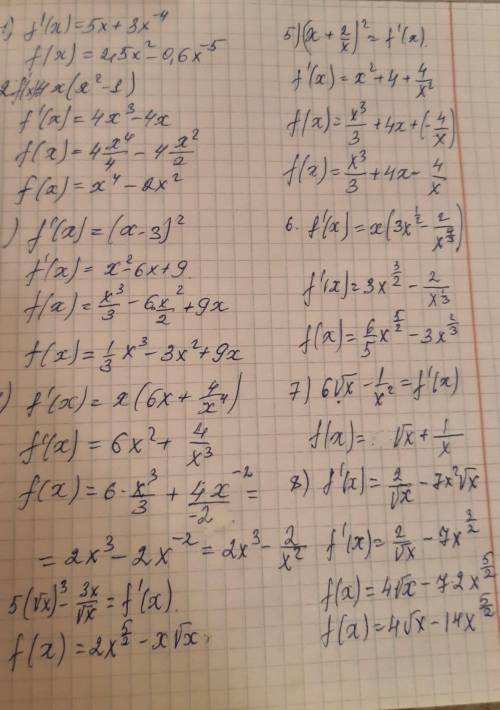 1) f'(x)=5x+3x⁻⁴
f(x)=2,5x²-0,6x⁻⁵
2. f'(x)=4x(x²-1)
f'(x)=4x³-4x
f(x)=4x⁴/4-4x²/2
f(x)=x⁴-2x²
) f'(x)=(x-3)²
f'(x)=x²-6x+9
f(x)=x³/3-6x²/2+9x
f(x)=1/3x³-3x²+9x
) f'(x)=x(6x+4/x⁴)
f'(x)=6x²+4/x³
f(x)=6·x³/3+4x⁻²/-2=
=2x³-2x⁻²=2x³-2/x²
5(√x)³-3x/√x=f'(x)
f(x)=2x^(5/2)-x√x
5) (x+2/x)²=f'(x)
f'(x)=x²+4+4/x²
f(x)=x³/3+4x+(-4/x)
f(x)=x³/3+4x-4/x
6. f'(x)=x(3x^(1/2)-2/x^(4/3))
f'(x)=3x^(3/2)-2/x^(1/3)
f(x)=6/5x^(5/2)-3x^(2/3)
7) 6√x-1/x²=f'(x)
f(x)= √x+1/x
8) f'(x)=2/√x-7x²√x
f'(x)=2/√x-7x^(3/2)
f(x)=4√x-7·2x^(5/2)
f(x)=4√x-14x^(5/2)